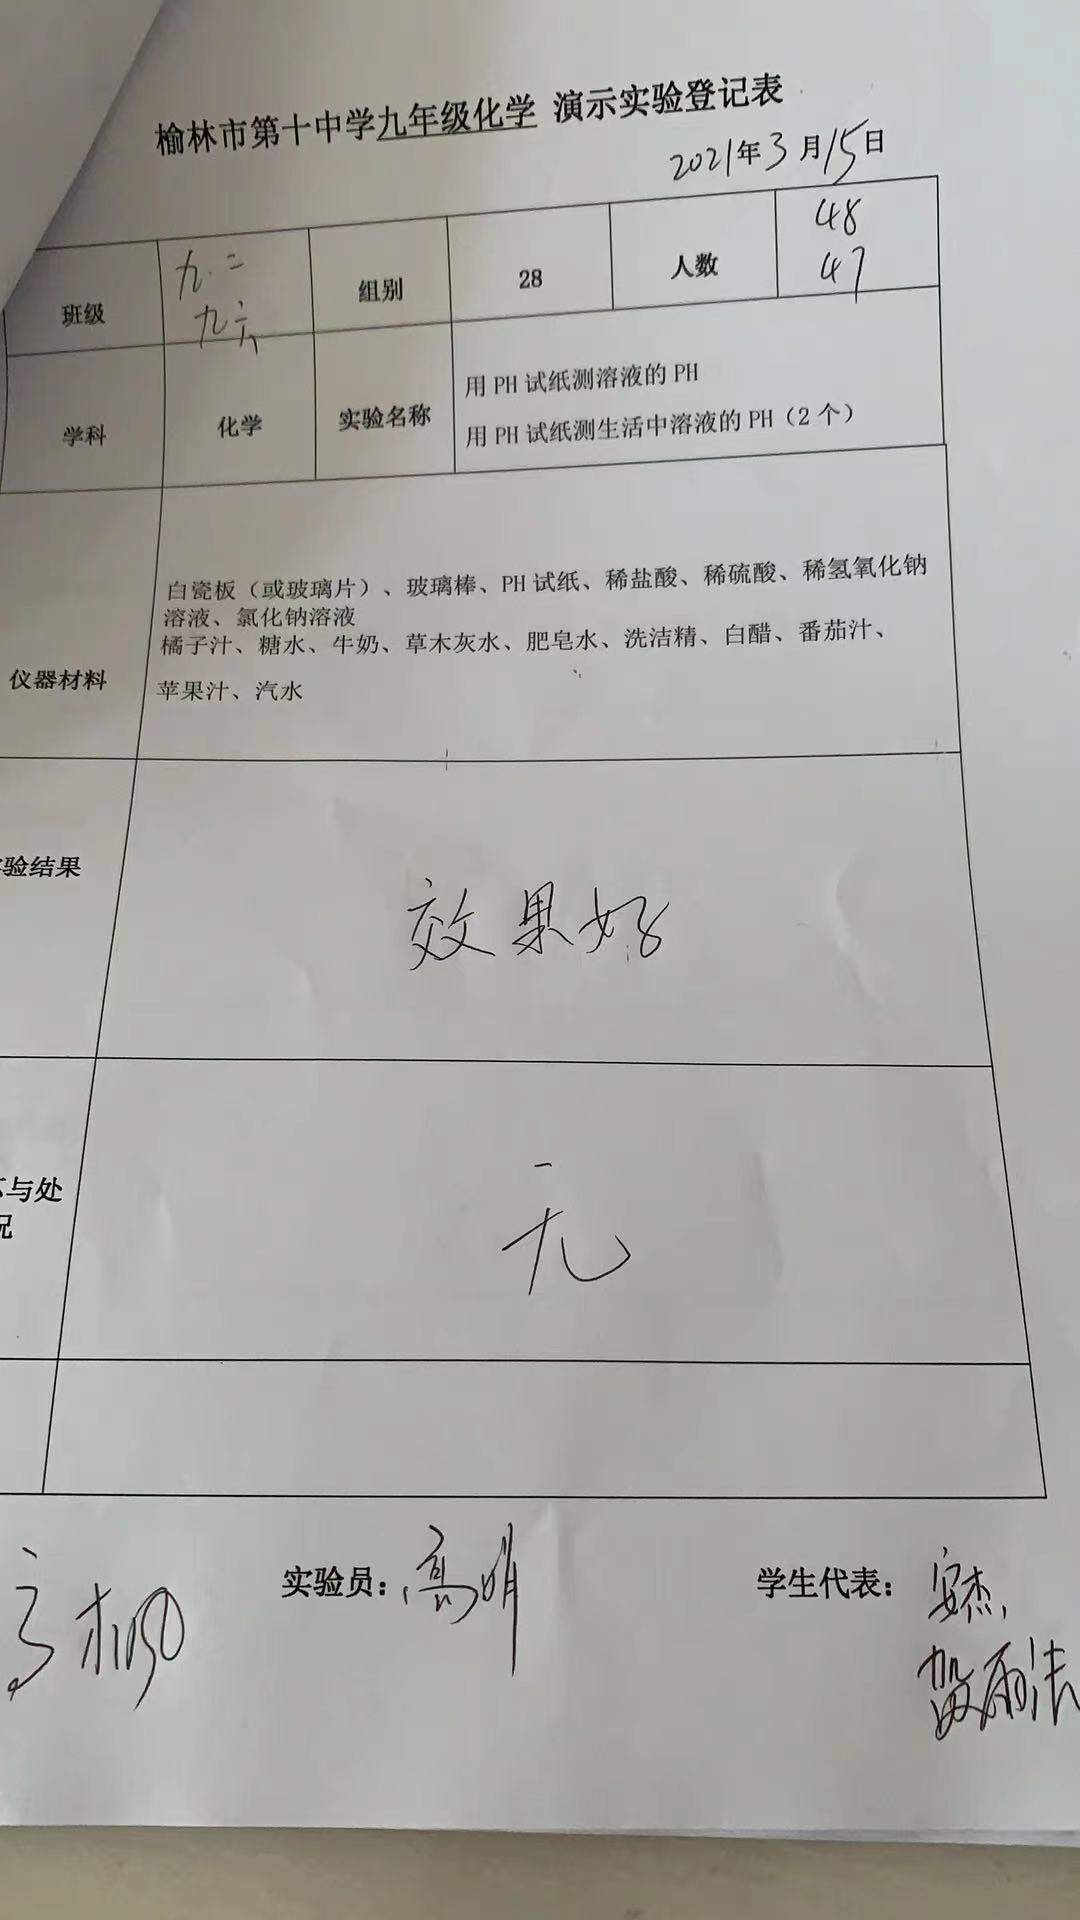 榆林市第十中学九年级化学 演示实验登记表
2021年3月15日
班级 九.二 组别 28 人数 48
九六 47
学科 化学 实验名称 用 PH 试纸测溶液的 PH
用 PH 试纸测生活中溶液的 PH（2 个）
仪器材料
白瓷板（或玻璃片）、玻璃棒、PH 试纸、稀盐酸、稀硫酸、稀氢氧化钠
溶液、氯化钠溶液
橘子汁、糖水、牛奶、草木灰水、肥皂水、洗洁精、白醋、番茄汁、
苹果汁、汽水
验结果 效果好
与处
况
无
实验员：高明 学生代表：安杰
贺雨洁